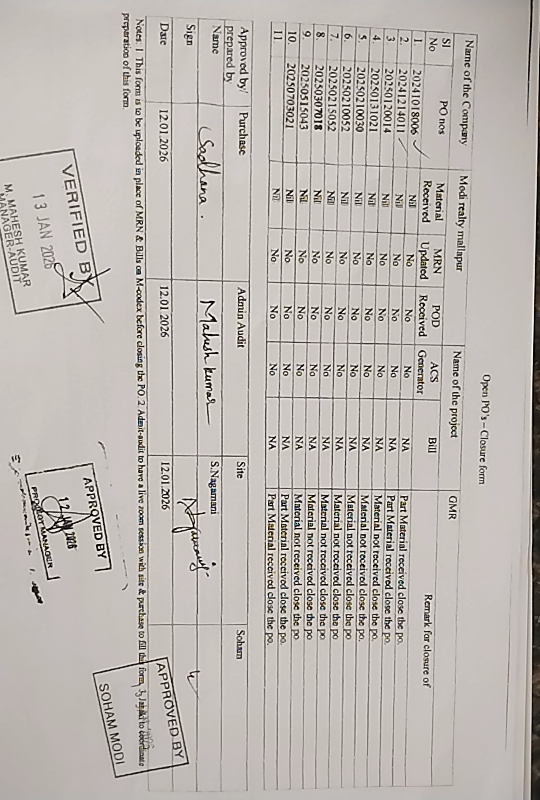 Open PO's – Closure form
Name of the Company Modi realty mallapur Name of the project GMR
SI No PO nos Material Received MRN Updated POD Received ACS Generator Bill Remark for closure of
1 20241018006 Nil No No No NA Part Material received close the po.
2. 20241214011 Nil No No No NA Part Material received close the po.
3. 20250120014 Nil No No No NA Material not received close the po.
4. 20250131021 Nil No No No NA Material not received close the po
5. 20250210030 Nil No No No NA Material not received close the po
6. 20250210052 Nil No No No NA Material not received close the po
7. 20250215052 Nil No No No NA Material not received close the po
8. 20250307018 Nil No No No NA Material not received close the po
9. 20250515043 Nil No No No NA Part Material received close the po.
10. 20250703021 Nil No No No NA Part Material received close the po.
11
Approved by/ prepared by Purchase Admin Audit Site Soham
Name S.Nagamani
Sign Sadhana. Mahesh kumar
Date 12.01.2026 12.01.2026 12.01.2026
Notes: 1. This form is to be uploaded in place of MRN & Bills on M-codex before closing the PO. 2. Admit-audit to have a live zoom session with site & purchase to fill the form. 3.
preparation of this form
VERIFIED BY
13 JAN 2026
M. MAHESH KUMAR
MANAGER-AUDIT
APPROVED BY
PROJECT MANAGER
APPROVED BY
SOHAM MODI